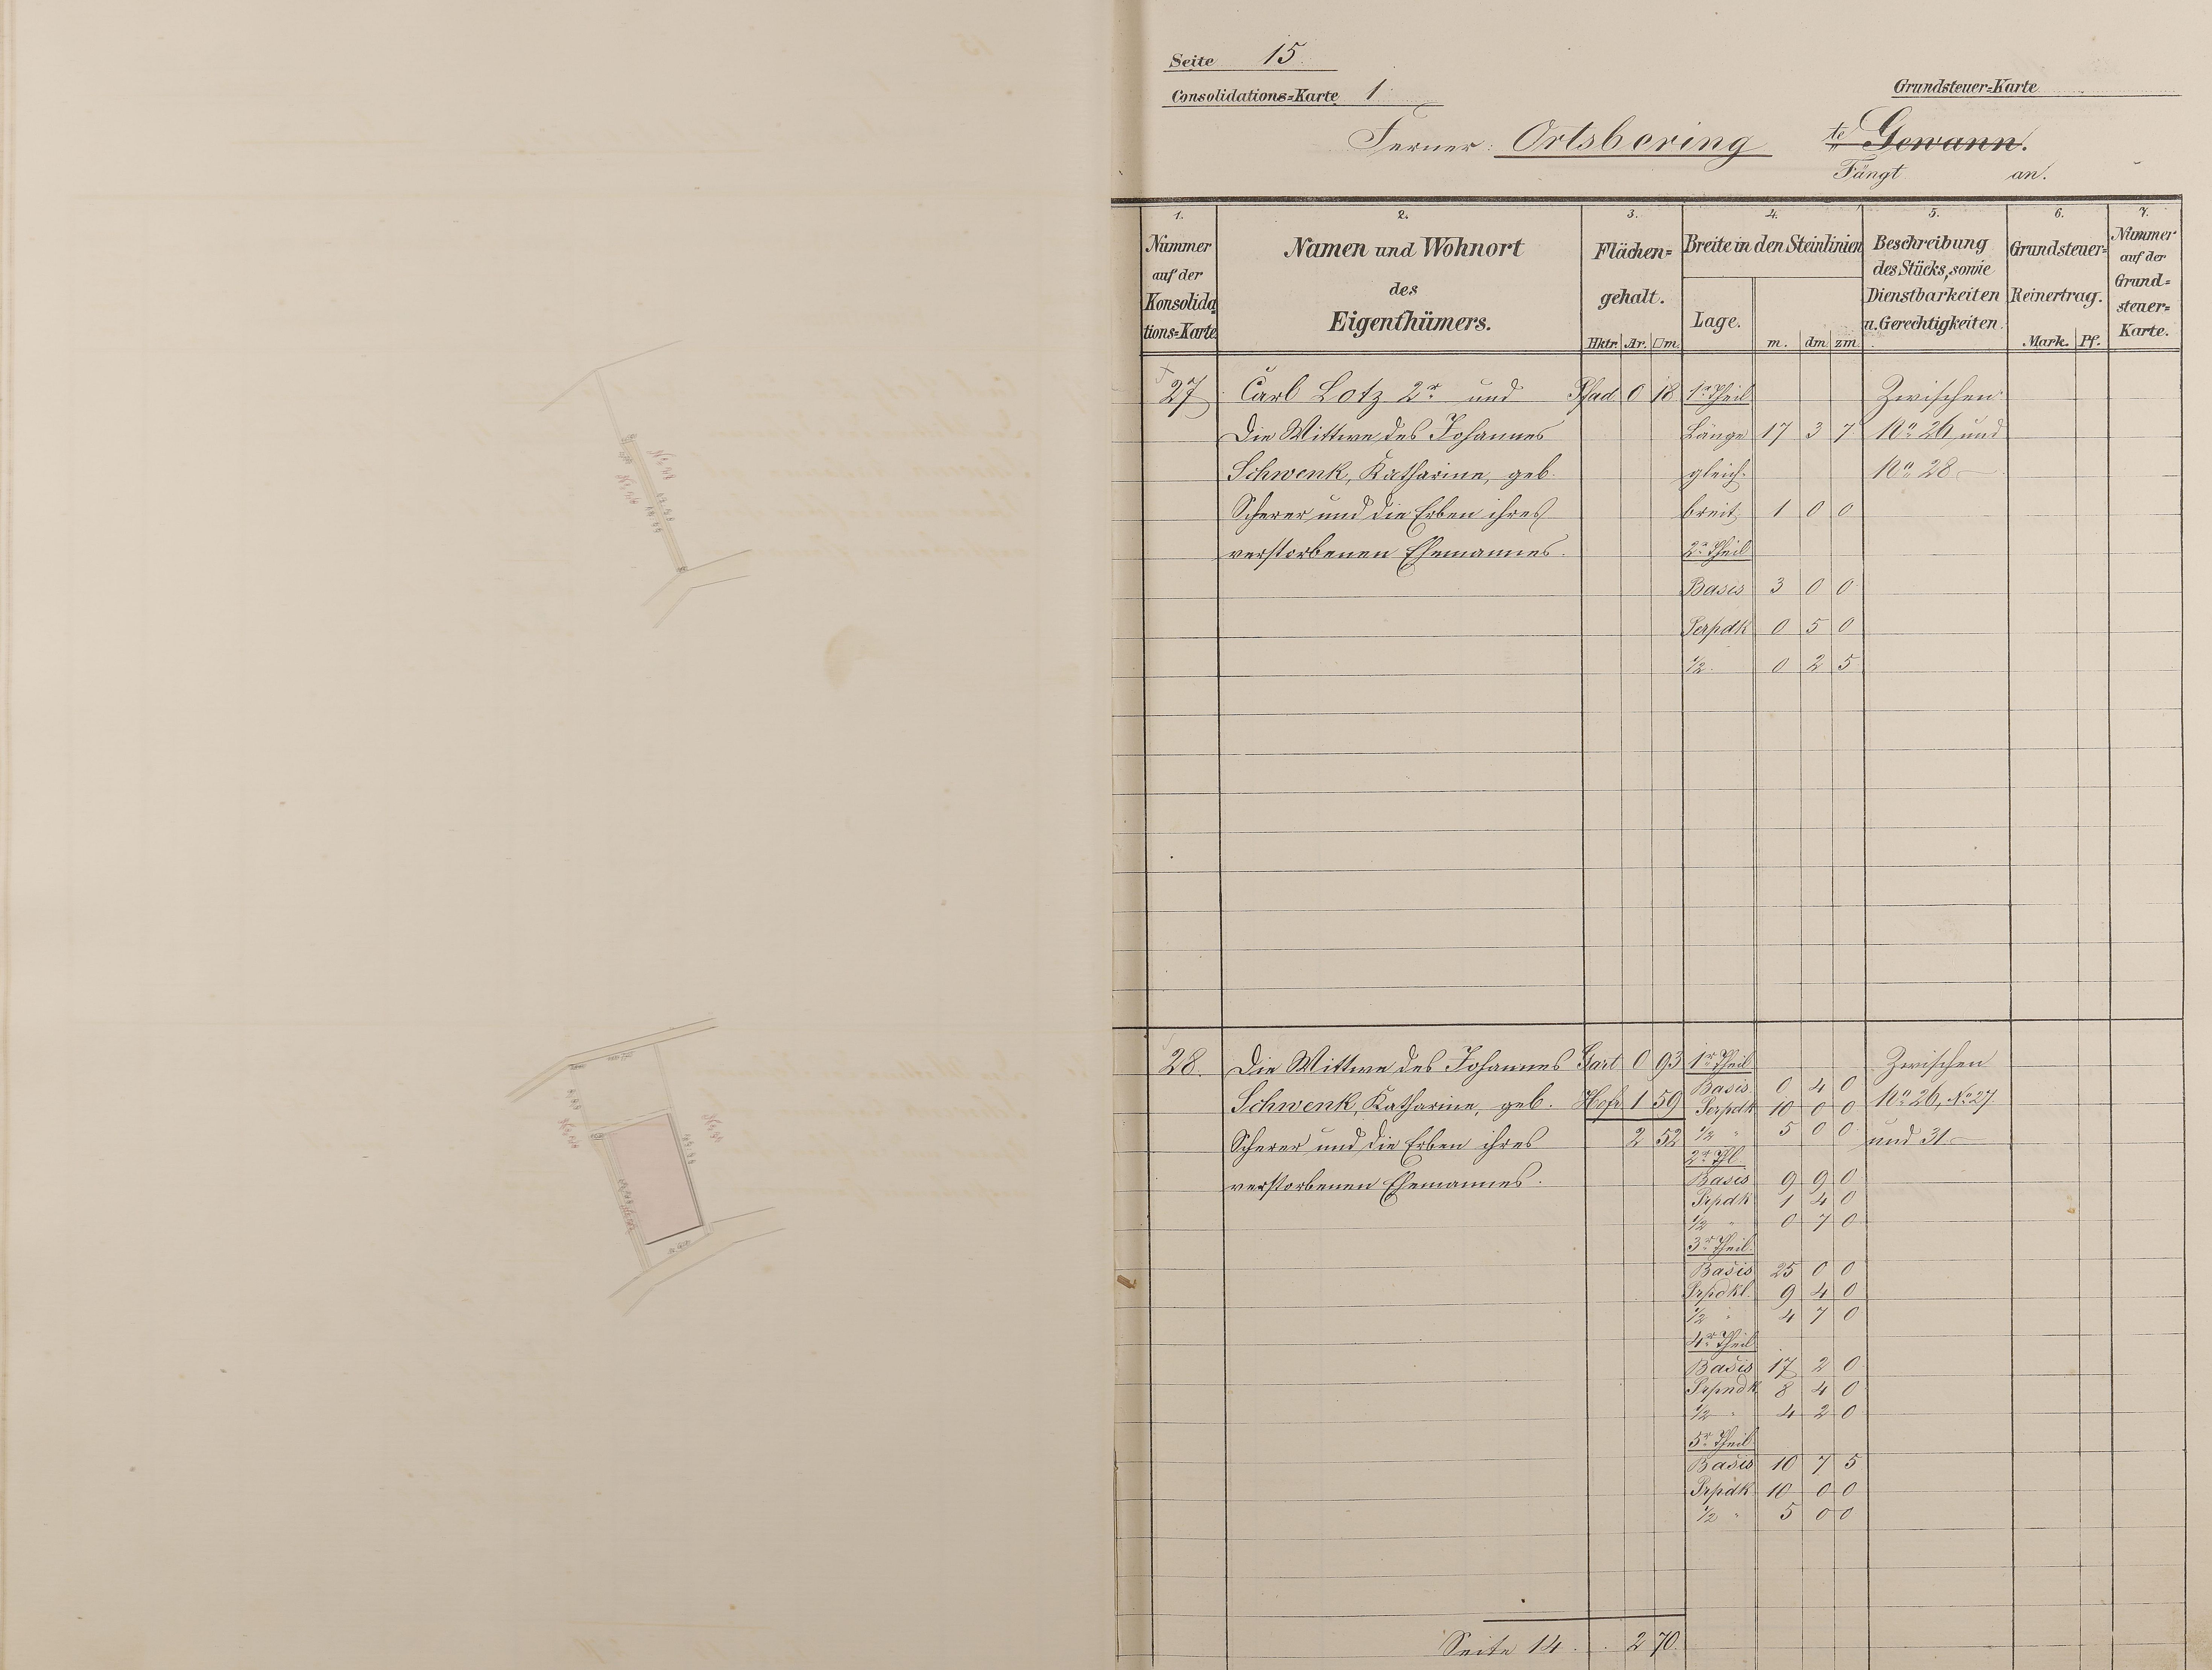 Seite 15.
Consolidations=Karte 1
Grundsteuer=Karte
Ferner: Ortsbering te Gewann.
Fängt an.
1. 2. 3. 4. 5. 6. 7.
Nummer auf der Konsolidations=Karte
Namen und Wohnort des Eigenthümers.
Flächen=gehalt.
Hktr. Ar. □m.
Breite in den Steinlinien
Lage. m. dm zm
Beschreibung des Stücks, sowie Dienstbarkeiten u. Gerechtigkeiten.
Grundsteuer=Reinertrag.
Mark. Pf.
Nummer auf der Grund=steuer=Karte.
27 Carl Lotz 2r und Pfad 0 18 1r Theil Zwischen
Die Wittwe des Johannes Länge 17 3 7 No 26 und
Schwenk, Katharine, geb. gleich No 28
Scherer und die Erben ihres breit 1 0 0
verstorbenen Ehemannes. 2r Theil
Basis 3 0 0
Perpdk 0 5 0
1/2 0 2 5
28. Die Wittwe des Johannes Gart 0 93 1r Theil Zwischen
Basis 0 4 0
Schwenk, Katharine, geb. Hofr 1 59 Perpdk 10 0 0 No 26, No 27.
Scherer und die Erben ihres 2 52 1/2 " 5 0 0 und 31
2r Thl.
verstorbenen Ehemannes. Basis 9 9 0
Prpdk 1 4 0
1/2 " 0 7 0
3r Theil
Basis 25 0 0
Prpdkl. 9 4 0
1/2 " 4 7 0
4r Theil
Basis 17 2 0
Prpndk 8 4 0
1/2 " 4 2 0
5r Theil
Basis 10 7 5
Prpdk 10 0 0
1/2 " 5 0 0
Seite 14 . . 2 70.